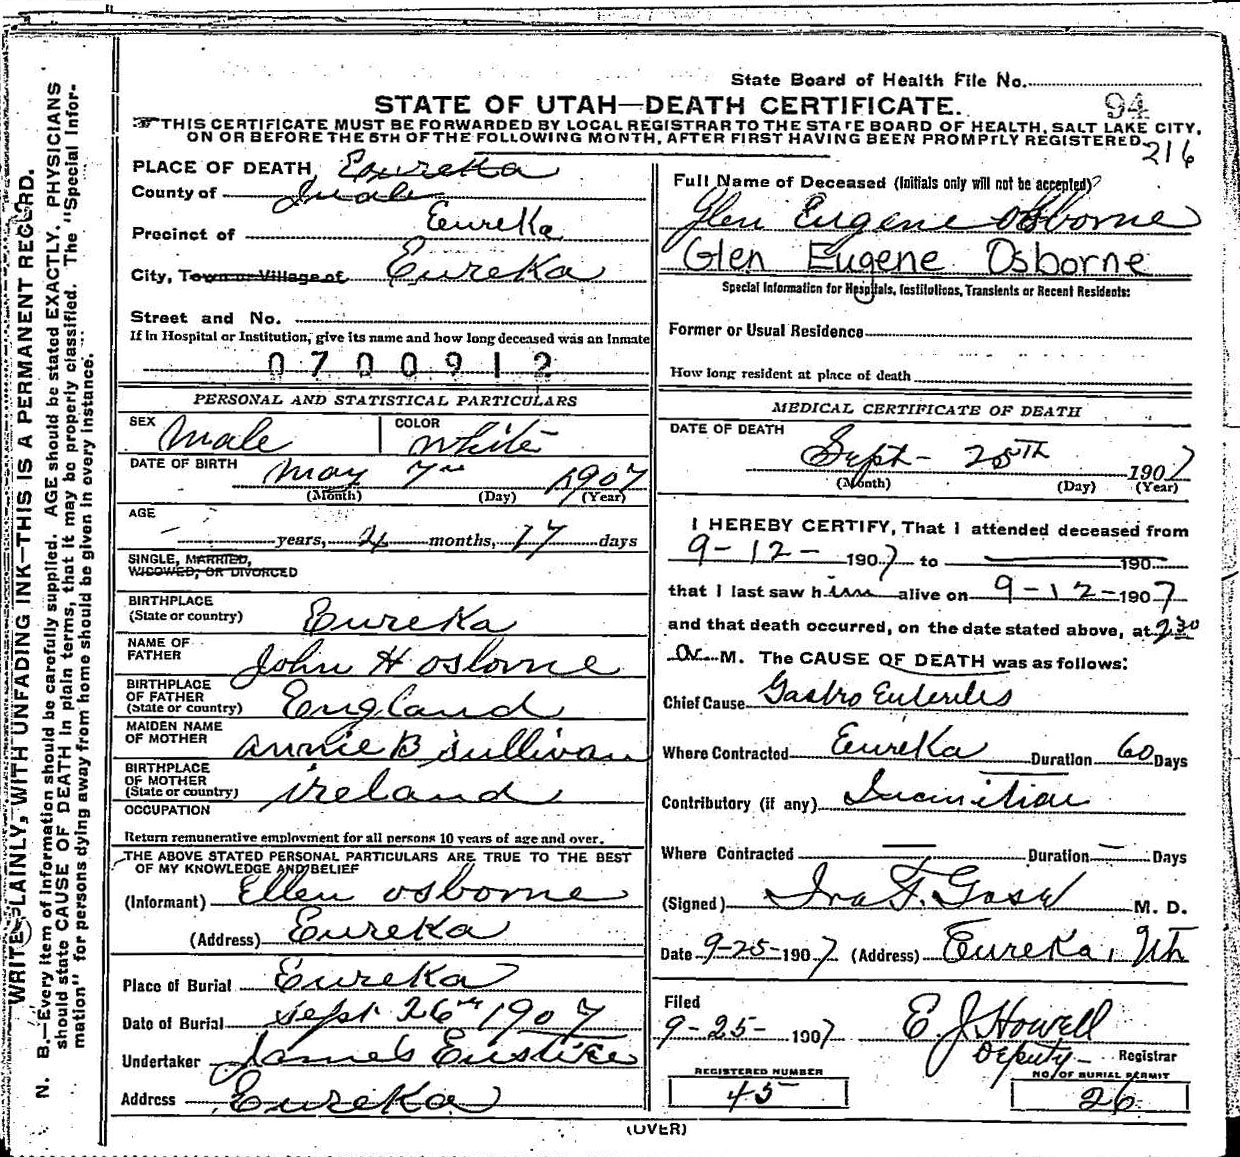 State Board of Health File No.
STATE OF UTAH—DEATH CERTIFICATE.
94
☞THIS CERTIFICATE MUST BE FORWARDED BY LOCAL REGISTRAR TO THE STATE BOARD OF HEALTH, SALT LAKE CITY,
ON OR BEFORE THE 5TH OF THE FOLLOWING MONTH, AFTER FIRST HAVING BEEN PROMPTLY REGISTERED.
216
WRITE PLAINLY, WITH UNFADING INK—THIS IS A PERMANENT RECORD.
N. B.—Every item of information should be carefully supplied. AGE should be stated EXACTLY. PHYSICIANS
should state CAUSE OF DEATH in plain terms, that it may be properly classified. The "Special Infor-
mation" for persons dying away from home should be given in every instance.
PLACE OF DEATH Eureka
County of Juab
Precinct of Eureka
City, Town or Village of Eureka
Street and No.
If in Hospital or Institution, give its name and how long deceased was an Inmate
0700912
PERSONAL AND STATISTICAL PARTICULARS
SEX Male COLOR White
DATE OF BIRTH May 7th 1907
(Month) (Day) (Year)
AGE
— years, 4 months, 17 days
SINGLE, MARRIED,
WIDOWED, OR DIVORCED
BIRTHPLACE
(State or country) Eureka
NAME OF
FATHER John H Osborne
BIRTHPLACE
OF FATHER
(State or country) England
MAIDEN NAME
OF MOTHER Annie B Sullivan
BIRTHPLACE
OF MOTHER
(State or country) ireland
OCCUPATION
Return remunerative employment for all persons 10 years of age and over.
THE ABOVE STATED PERSONAL PARTICULARS ARE TRUE TO THE BEST
OF MY KNOWLEDGE AND BELIEF
(Informant) Ellen Osborne
(Address) Eureka
Place of Burial Eureka
Date of Burial Sept 26th 1907
Undertaker James
Address Eureka
Full Name of Deceased (Initials only will not be accepted)
Glen Eugene Osborne
Glen Eugene Osborne
Special Information for Hospitals, Institutions, Transients or Recent Residents:
Former or Usual Residence
How long resident at place of death
MEDICAL CERTIFICATE OF DEATH
DATE OF DEATH
Sept- 25TH 1907
(Month) (Day) (Year)
I HEREBY CERTIFY, That I attended deceased from
9-12- 1907 to 190
that I last saw him alive on 9-12-1907
and that death occurred, on the date stated above, at 2 30
a. M. The CAUSE OF DEATH was as follows:
Chief Cause Gastro Enteritis
Where Contracted Eureka Duration 60 Days
Contributory (if any) Inanition
Where Contracted — Duration — Days
(Signed) Ira F. M. D.
Date 9-25-1907 (Address) Eureka, Uth
Filed
9-25- 1907 E J Howell
Deputy- Registrar
REGISTERED NUMBER
45
NO. OF BURIAL PERMIT
26
(OVER)